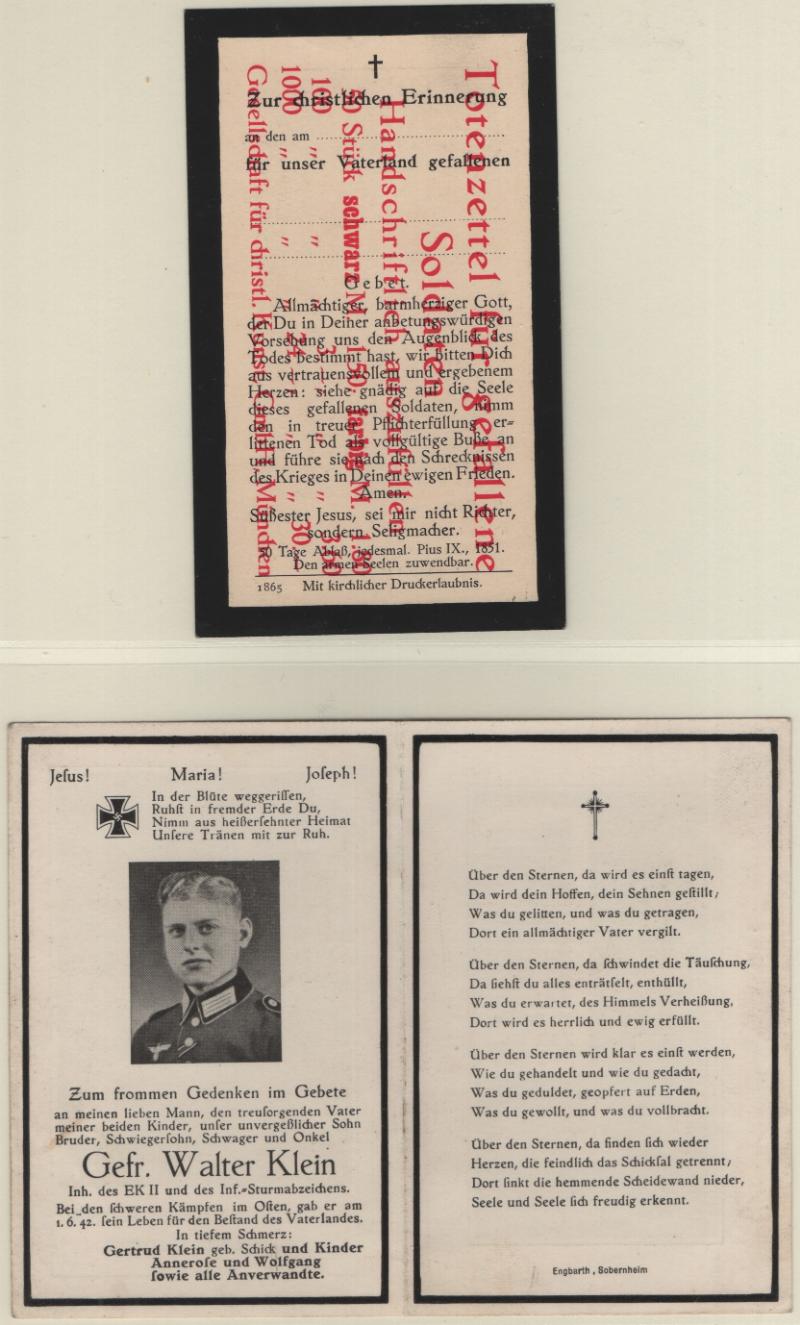 Zur christlichen Erinnerung
an den am
für unser Vaterland gefallenen
Gebet.
Allmächtiger, barmherziger Gott,
der Du in Deiner anbetungswürdigen
Vorsehung uns den Augenblick des
Todes bestimmt hast, wir bitten Dich
aus vertrauensvollem und ergebenem
Herzen: siehe gnädig auf die Seele
dieses gefallenen Soldaten, nimm
den in treuer Pflichterfüllung er=
littenen Tod als vollgültige Buße an
und führe sie nach den Schrecknissen
des Krieges in Deinen ewigen Frieden.
Amen.
Süßester Jesus, sei mir nicht Richter,
sondern Seligmacher.
50 Tage Ablaß, jedesmal. Pius IX., 1851.
Den armen Seelen zuwendbar.
1865 Mit kirchlicher Druckerlaubnis.
Totenzettel für gefallene
Soldaten
Handschriftlich auszufüllen
50 Stück schwarz M. 1.50 farbig M. 1.80
100 " " 3. " 3.60
1000 " " 24 " " 30
Gesellschaft für christl. Kunst GmbH München
Jeſus! Maria! Joſeph!
In der Blüte weggeriſſen,
Ruhſt in fremder Erde Du,
Nimm aus heißerſehnter Heimat
Unſere Tränen mit zur Ruh.
Zum frommen Gedenken im Gebete
an meinen lieben Mann, den treuſorgenden Vater
meiner beiden Kinder, unſer unvergeßlicher Sohn
Bruder, Schwiegerſohn, Schwager und Onkel
Gefr. Walter Klein
Inh. des EK II und des Inf.=Sturmabzeichens.
Bei den ſchweren Kämpfen im Oſten, gab er am
1. 6. 42. ſein Leben für den Beſtand des Vaterlandes.
In tiefem Schmerz:
Gertrud Klein geb. Schick und Kinder
Anneroſe und Wolfgang
ſowie alle Anverwandte.
Über den Sternen, da wird es einſt tagen,
Da wird dein Hoffen, dein Sehnen geſtillt;
Was du gelitten, und was du getragen,
Dort ein allmächtiger Vater vergilt.
Über den Sternen, da ſchwindet die Täuſchung,
Da ſiehſt du alles enträtſelt, enthüllt,
Was du erwartet, des Himmels Verheißung,
Dort wird es herrlich und ewig erfüllt.
Über den Sternen wird klar es einſt werden,
Wie du gehandelt und wie du gedacht,
Was du geduldet, geopfert auf Erden,
Was du gewollt, und was du vollbracht.
Über den Sternen, da finden ſich wieder
Herzen, die feindlich das Schickſal getrennt;
Dort ſinkt die hemmende Scheidewand nieder,
Seele und Seele ſich freudig erkennt.
Engbarth, Sobernheim